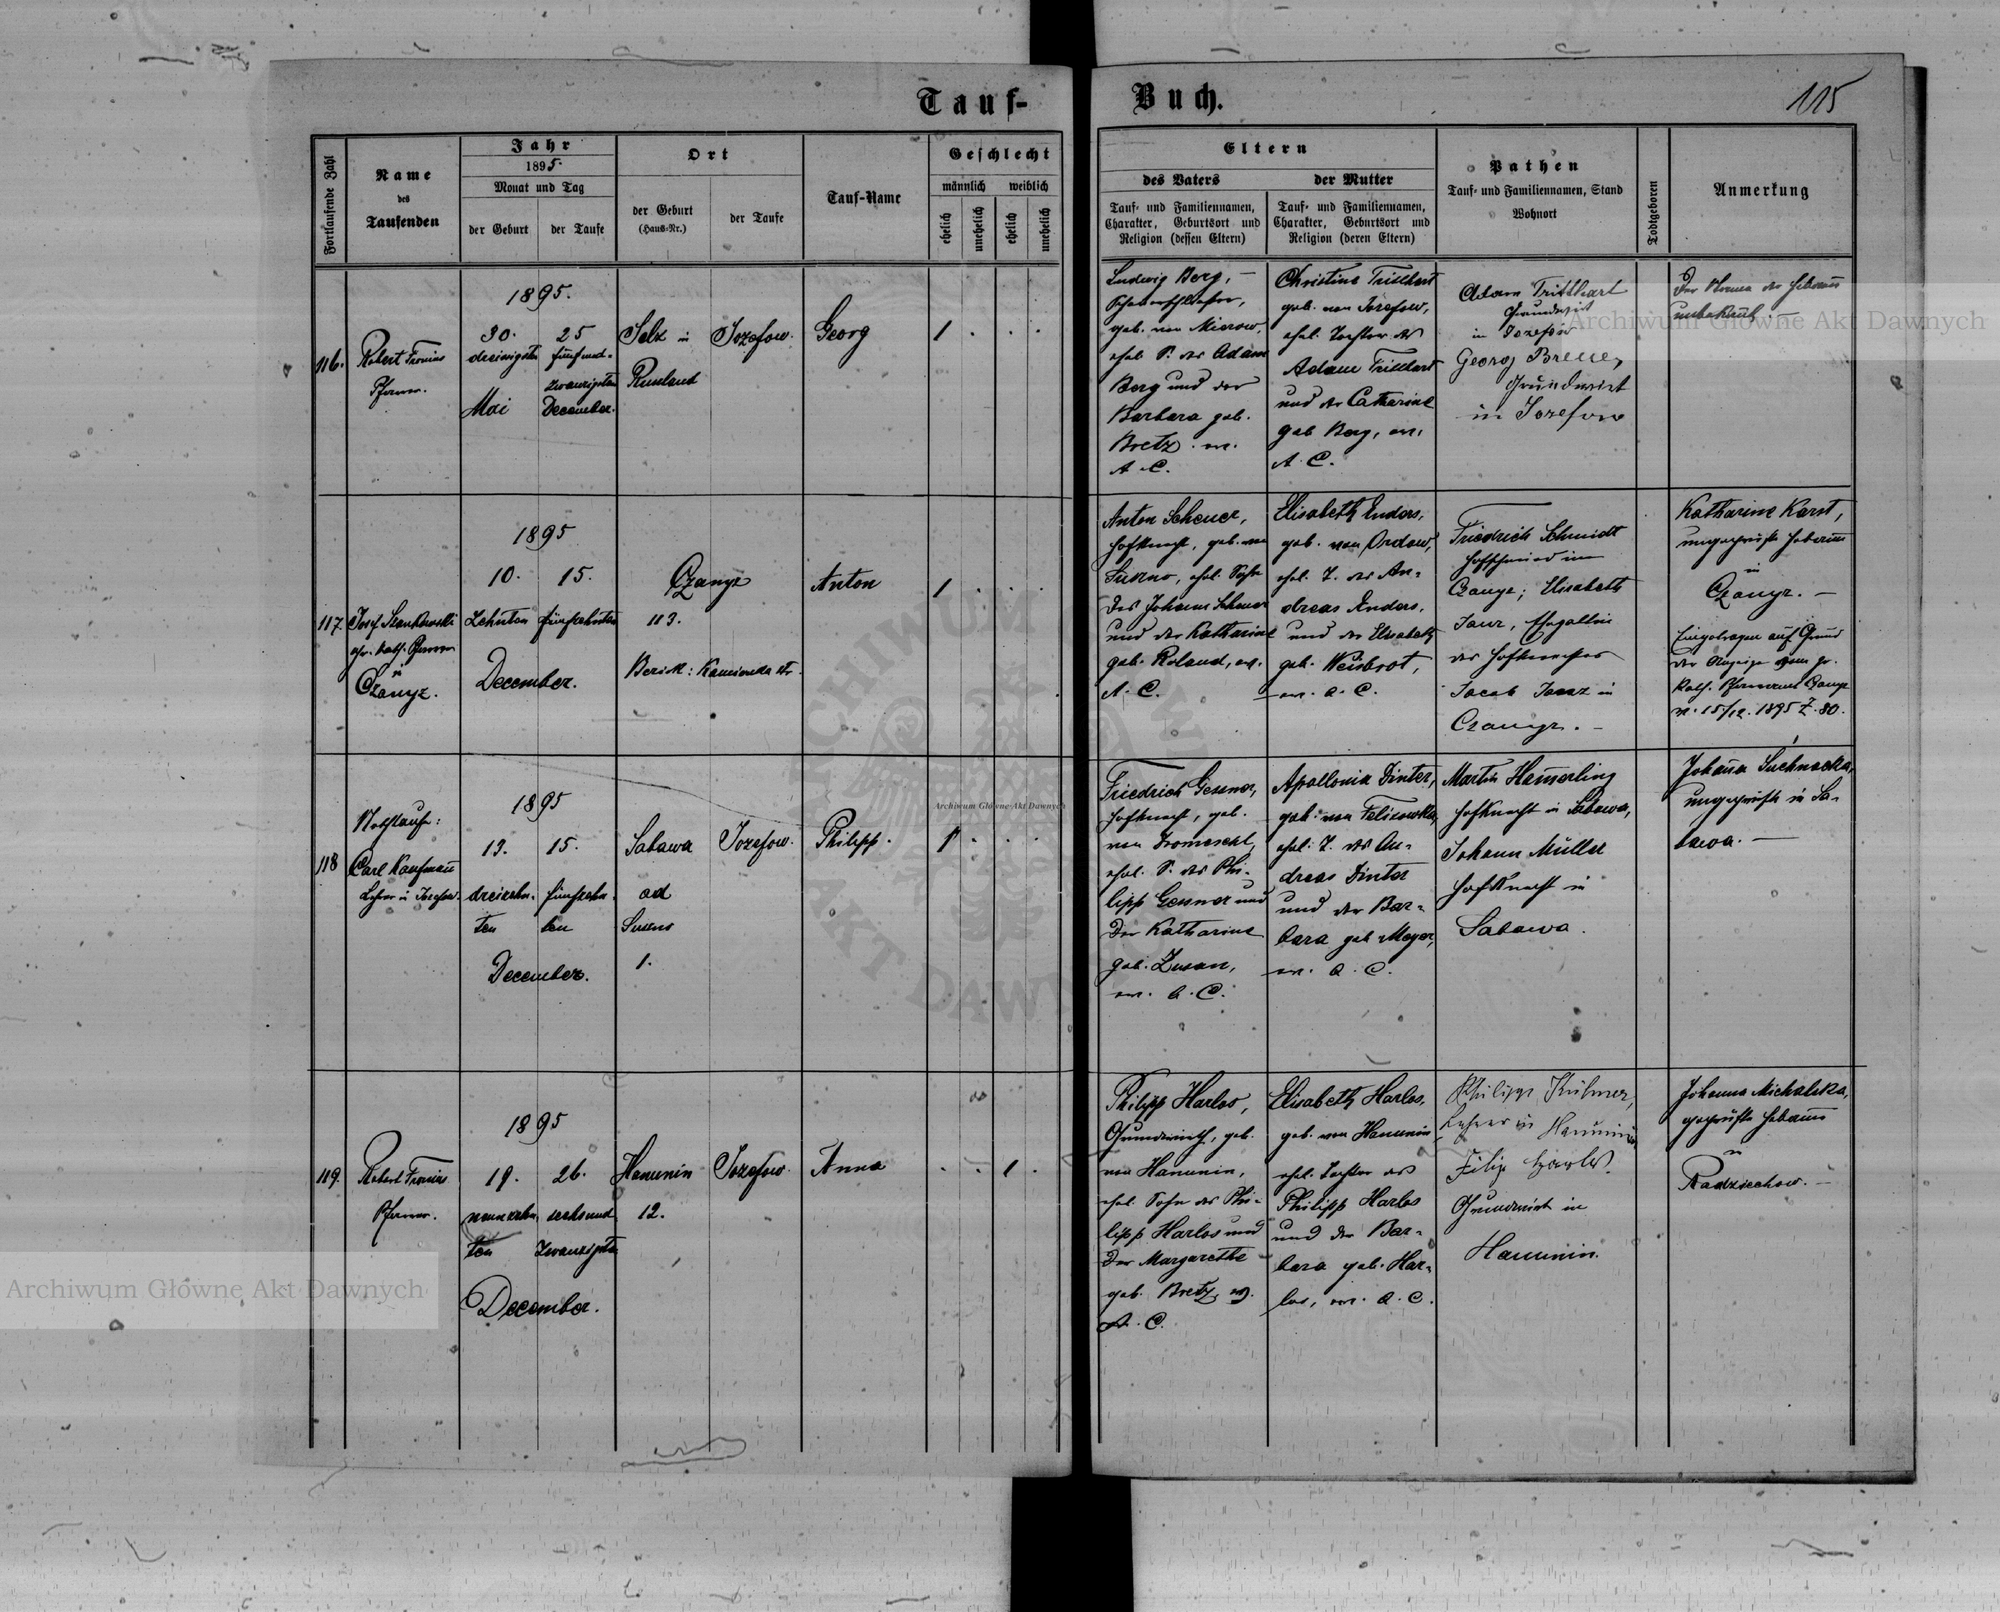 Tauf-
Buch.
115
Fortlaufende Zahl
Name
des
Taufenden
Jahr
1895.
Monat und Tag
der Geburt
der Taufe
Ort
der Geburt
(Haus-Nr.)
der Taufe
Tauf-Name
Geschlecht
männlich
weiblich
ehelich
unehelich
ehelich
unehelich
Eltern
des Vaters
Tauf- und Familiennamen,
Charakter, Geburtsort und
Religion (dessen Eltern)
der Mutter
Tauf- und Familiennamen,
Charakter, Geburtsort und
Religion (deren Eltern)
Pathen
Tauf- und Familiennamen, Stand
Wohnort
Todtgeboren
Anmerkung
116.
Robert Fronius
Pfarrer.
1895.
30.
dreissigsten
Mai
25
fünfund-
zwanzigsten
December.
Selz in
Russland
Jozefow.
Georg
1
Ludwig Berg,
geb. von Mierow,
ehel. S. des Adam
Berg und der
Barbara geb.
Bretz. ev.
A. C.
Christine Tritthart
geb. von Jozefow,
ehel. Tochter des
Adam Tritthart
und der Catharine
geb. Berg, ev.
A. C.
Adam Tritthart
Grundwirt
in Jozefow
Georg Breuer,
Grundwirt
in Jozefow
Der Name der Hebamme
unbekannt. —
117.
Josef
gr. kath. Pfarrer
in
Czanyz.
1895
10.
Zehnten
15.
fünfzehnten
December.
Czanyz
113.
Bezirk: Kamionka str.
Anton
1
Anton Scheuer,
Hofknecht, geb. von
Suszno, ehel. Sohn
des Johann Scheuer
und der Katharine
geb. Roland, ev.
A. C.
Elisabeth Enders,
geb. von Ordow,
ehel. T. des An-
dreas Enders,
und der Elisabeth
geb. Weisbrot,
ev. A. C.
Friedrich Schmidt
Hofschmied in
Czanyz; Elisabeth
Janz, Ehegattin
des Hofknechtes
Jacob Janz in
Czanyz. —
Katharine Karst,
ungeprüfte Hebamme
in
Czanyz. —
Eingetragen auf Grund
der Anzeige vom gr.
Kath. Pfarramte Czanyz
v. 15/12. 1895 Z. 80.
118
Nothtaufe:
Carl Kaufmann
Lehrer in Jozefow.
1895
13.
dreizehn-
ten
15.
fünfzehn-
ten
December.
Sabawa
ad
1.
Jozefow.
Philipp.
1
Friedrich Gessner,
Hofknecht, geb.
ehel. S. des Phi-
lipp Gessner und
der Katharine
geb. Zuzan,
ev. A. C.
Apollonia Dinter,
geb. von Felizowka,
ehel. T. des An-
dreas Dinter
und der Bar-
bara geb. Mayer,
ev. A. C.
Martin Hamerling
Hofknecht in Sabawa,
Johann Müller
Hofknecht in
Sabawa.
Johanna Suchnacka,
ungeprüfte in Sa-
bawa. —
119.
Robert Fronius
Pfarrer.
1895
19.
neunzehn-
ten
26.
sechsund-
zwanzigsten
December.
Hanunin
12.
Jozefow.
Anna
1
Philipp Harlos,
Grundwirth, geb.
von Hanunin,
ehel. Sohn des Phi-
lipp Harlos und
der Margarethe
geb. Bretz, ev.
A. C.
Elisabeth Harlos,
geb. von Hanunin
ehel. Tochter des
Philipp Harlos
und der Bar-
bara geb. Har-
los, ev. A. C.
Philipp Kühner,
Lehrer in Hanunin
Filip Harlos.
Grundwirt in
Hanunin.
Johanna Michalska,
geprüfte Hebamme
in
Radziechow. —
Archiwum Główne Akt Dawnych
Archiwum Główne Akt Dawnych
Archiwum Główne Akt Dawnych